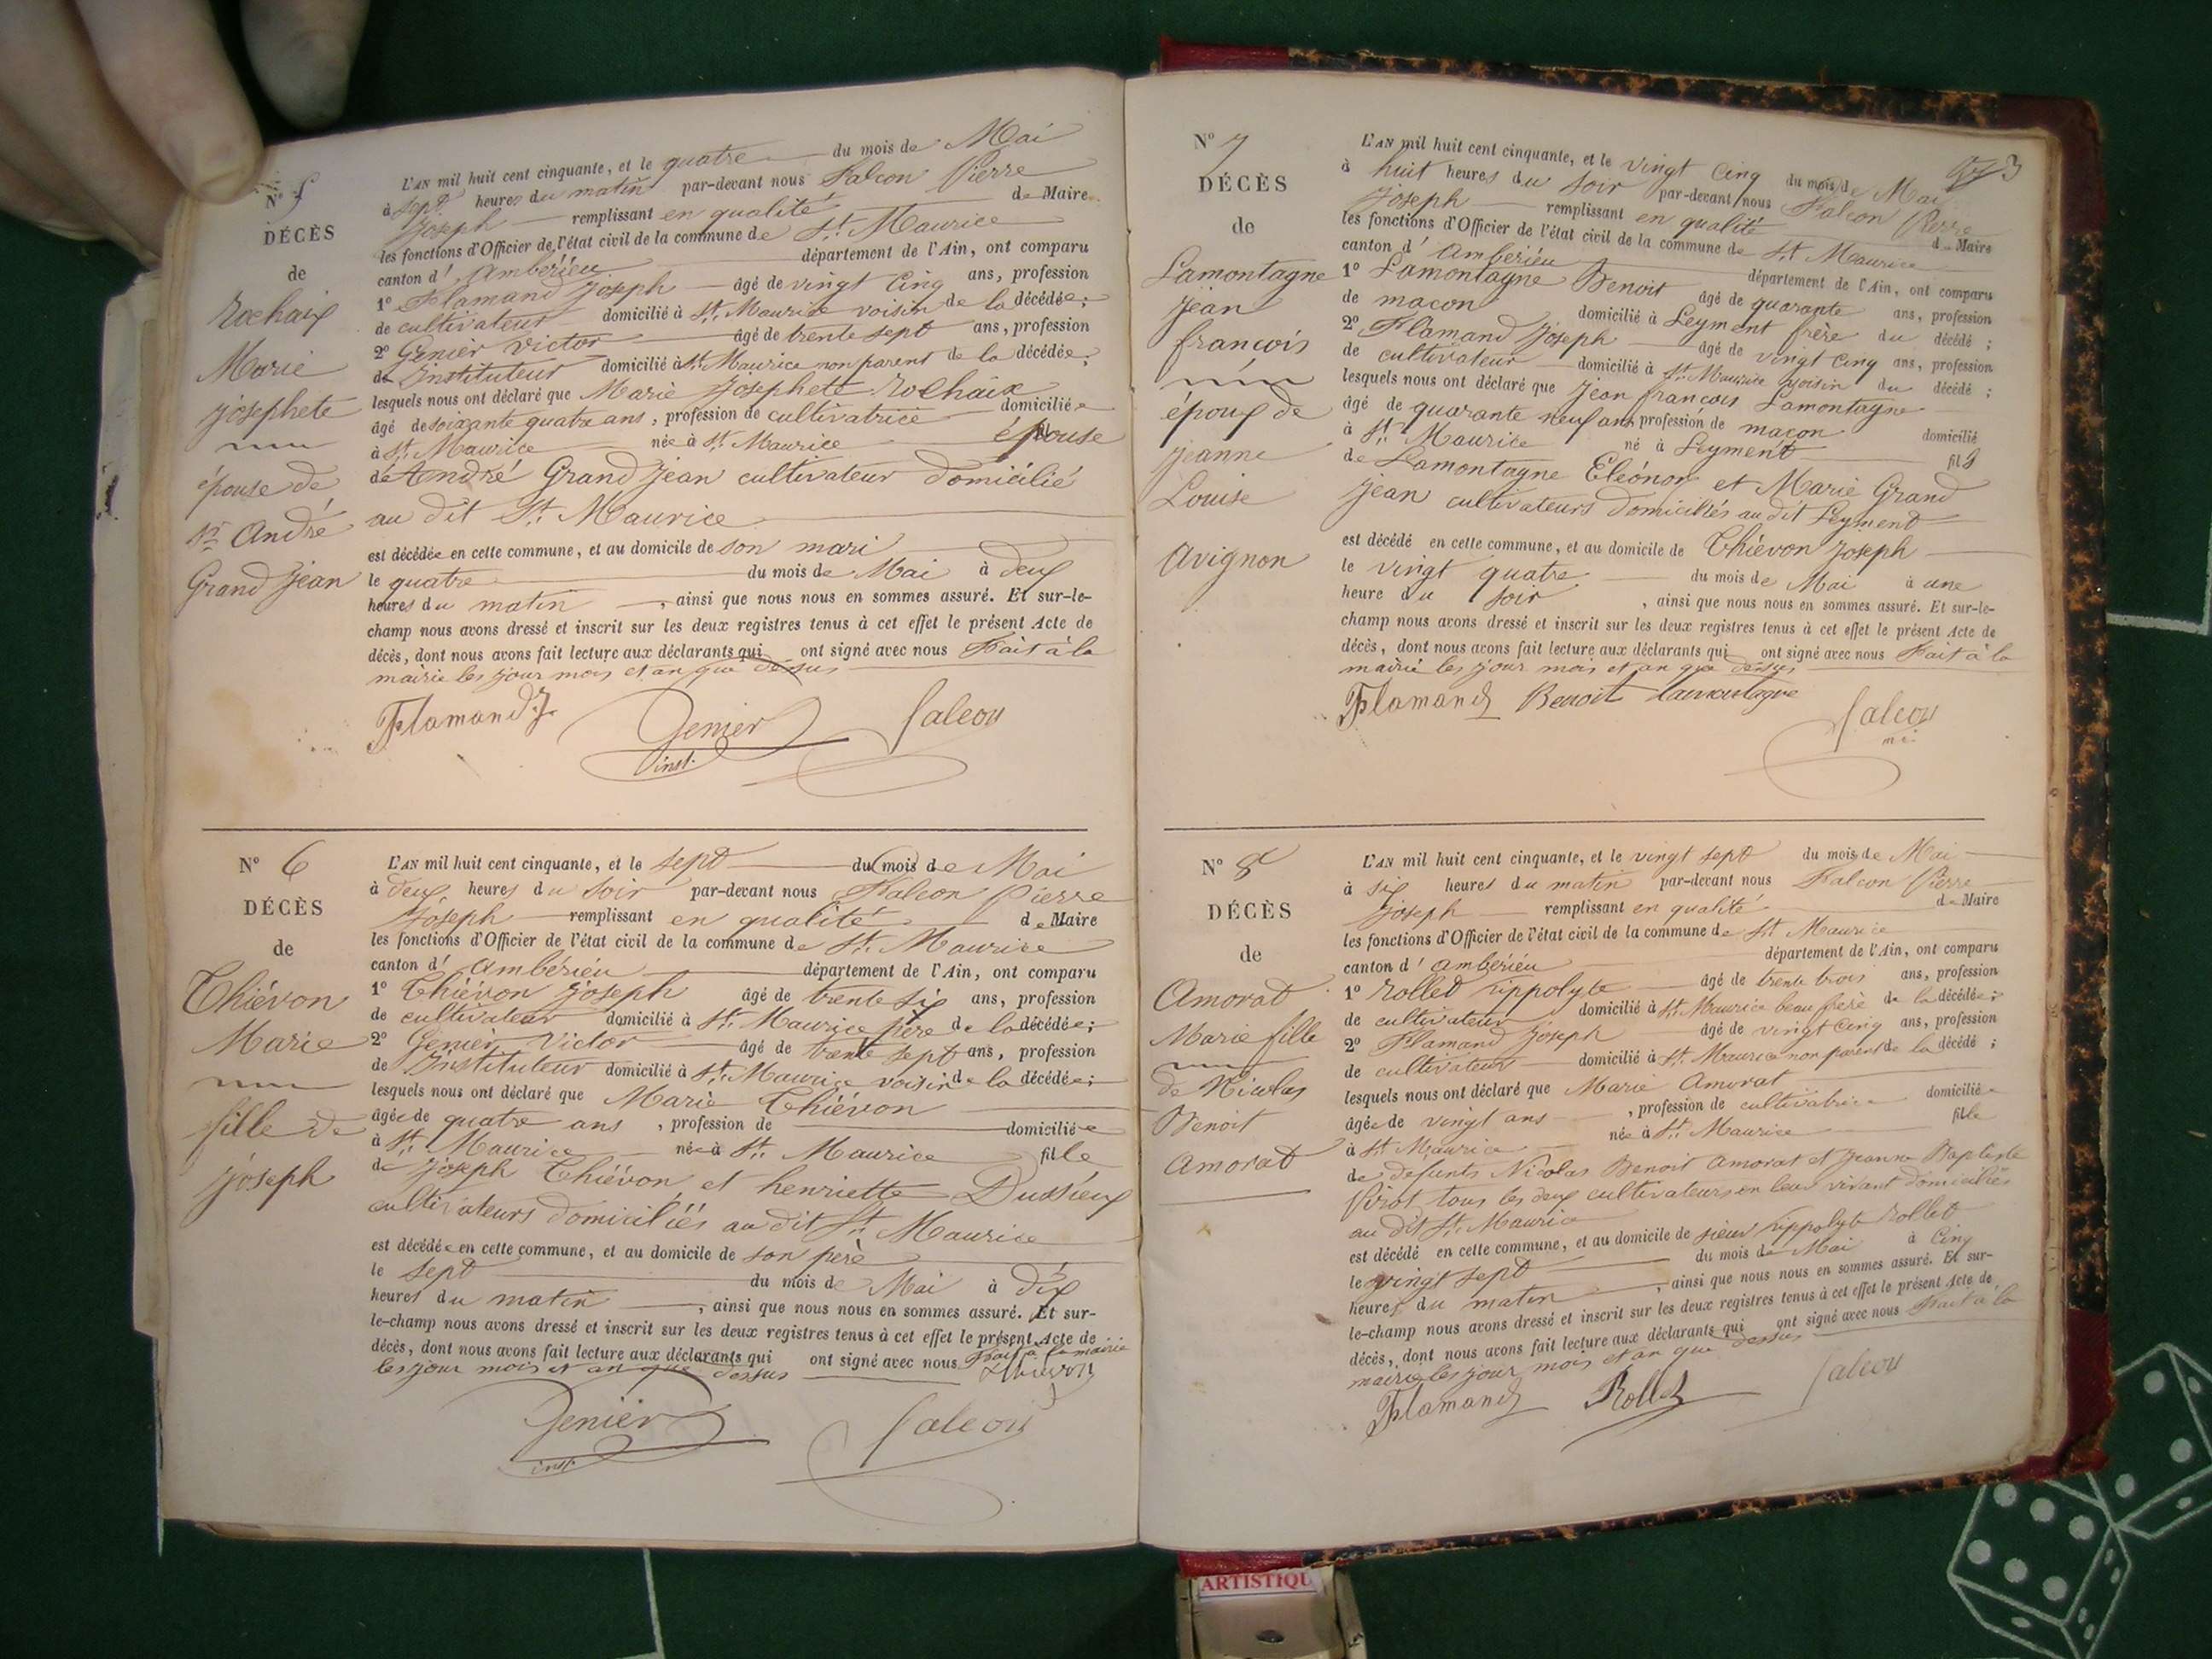 N° 5
DÉCÈS
de
Rochaix
Marie
josephete
épouse de
sr André
Grand Jean
L'AN mil huit cent cinquante, et le quatre du mois de Mai
à sept heures du matin par-devant nous Falcon Pierre
Joseph remplissant en qualité de Maire
les fonctions d'Officier de l'état civil de la commune de St. Maurice
canton d' Ambérieu département de l'Ain, ont comparu
1° Flamand Joseph âgé de vingt cinq ans, profession
de cultivateur domicilié à St. Maurice voisin de la décédée;
2° Genier Victor âgé de trente sept ans, profession
de Instituteur domicilié à St. Maurice non parent de la décédée;
lesquels nous ont déclaré que Marie Josephete Rochaix
âgé de soixante quatre ans, profession de cultivatrice domiciliée
à St. Maurice née à St. Maurice épouse
de André Grand Jean cultivateur domicilié
au dit St. Maurice
est décédée en cette commune, et au domicile de son mari
le quatre du mois de Mai à deux
heures du matin, ainsi que nous nous en sommes assuré. Et sur-le-
champ nous avons dressé et inscrit sur les deux registres tenus à cet effet le présent Acte de
décès, dont nous avons fait lecture aux déclarants qui ont signé avec nous Fait à la
mairie les jour mois et an que dessus
Flamand J. Genier Falcon
inst.
N° 6
DÉCÈS
de
Thiévon
Marie
fille de
joseph
L'AN mil huit cent cinquante, et le sept du mois de Mai
à deux heures du soir par-devant nous Falcon Pierre
Joseph remplissant en qualité de Maire
les fonctions d'Officier de l'état civil de la commune de St. Maurice
canton d' Ambérieu département de l'Ain, ont comparu
1° Thiévon Joseph âgé de trente six ans, profession
de cultivateur domicilié à St. Maurice père de la décédée;
2° Genier Victor âgé de trente sept ans, profession
de Instituteur domicilié à St. Maurice voisin de la décédée;
lesquels nous ont déclaré que Marie Thiévon
âgée de quatre ans, profession de domiciliée
à St. Maurice née à St. Maurice fille
de Joseph Thiévon et henriette Dussieux
cultivateurs domiciliés au dit St. Maurice
est décédée en cette commune, et au domicile de son père
le sept du mois de Mai à dix
heures du matin, ainsi que nous nous en sommes assuré. Et sur-
le-champ nous avons dressé et inscrit sur les deux registres tenus à cet effet le présent Acte de
décès, dont nous avons fait lecture aux déclarants qui ont signé avec nous Fait à la mairie
les jour mois et an que dessus Thievon
Genier Falcon
inst.
N° 7
DÉCÈS
de
Lamontagne
Jean
françois
époux de
Jeanne
Louise
Avignon
L'AN mil huit cent cinquante, et le vingt cinq du mois de Mai
à huit heures du soir par-devant nous Falcon Pierre
Joseph remplissant en qualité de Maire
les fonctions d'Officier de l'état civil de la commune de St. Maurice
canton d' Ambérieu département de l'Ain, ont comparu
1° Lamontagne Benoit âgé de quarante ans, profession
de macon domicilié à Leyment frère du décédé;
2° Flamand Joseph âgé de vingt cinq ans, profession
de cultivateur domicilié à St. Maurice voisin du décédé;
lesquels nous ont déclaré que Jean francois Lamontagne
âgé de quarante neuf ans profession de macon domicilié
à St. Maurice né à Leyment fils
de Lamontagne Eleónor et Marie Grand
Jean cultivateurs domiciliés au dit Leyment
est décédé en cette commune, et au domicile de Thiévon Joseph
le vingt quatre du mois de Mai à une
heure du soir, ainsi que nous nous en sommes assuré. Et sur-le-
champ nous avons dressé et inscrit sur les deux registres tenus à cet effet le présent Acte de
décès, dont nous avons fait lecture aux déclarants qui ont signé avec nous Fait à la
mairie les jour mois et an que dessus
Flamand Benoit Lamontagne Falcon
N° 8
DÉCÈS
de
Amorat
Marie fille
de Nicolas
Benoit
Amorat
L'AN mil huit cent cinquante, et le vingt sept du mois de Mai
à six heures du matin par-devant nous Falcon Pierre
Joseph remplissant en qualité de Maire
les fonctions d'Officier de l'état civil de la commune de St. Maurice
canton d' Ambérieu département de l'Ain, ont comparu
1° Rollet hippolyte âgé de trente trois ans, profession
de cultivateur domicilié à St. Maurice beau frère de la décédée;
2° Flamand Joseph âgé de vingt cinq ans, profession
de cultivateur domicilié à St. Maurice non parent de la décédé;
lesquels nous ont déclaré que Marie Amorat
âgée de vingt ans, profession de cultivatrice domiciliée
à St. Maurice née à St. Maurice fille
de defunts Nicolas Benoit Amorat et Jeanne Baptiste
Virot tous les deux cultivateurs en leur vivant domiciliés
au dit St. Maurice
est décédé en cette commune, et au domicile de sieur hippolyte Rollet
le vingt sept du mois de Mai à cinq
heures du matin, ainsi que nous nous en sommes assuré. Et sur-
le-champ nous avons dressé et inscrit sur les deux registres tenus à cet effet le présent Acte de
décès, dont nous avons fait lecture aux déclarants qui ont signé avec nous Fait à la
mairie les jour mois et an que dessus
Flamand Rollet Falcon
ARTISTIQU